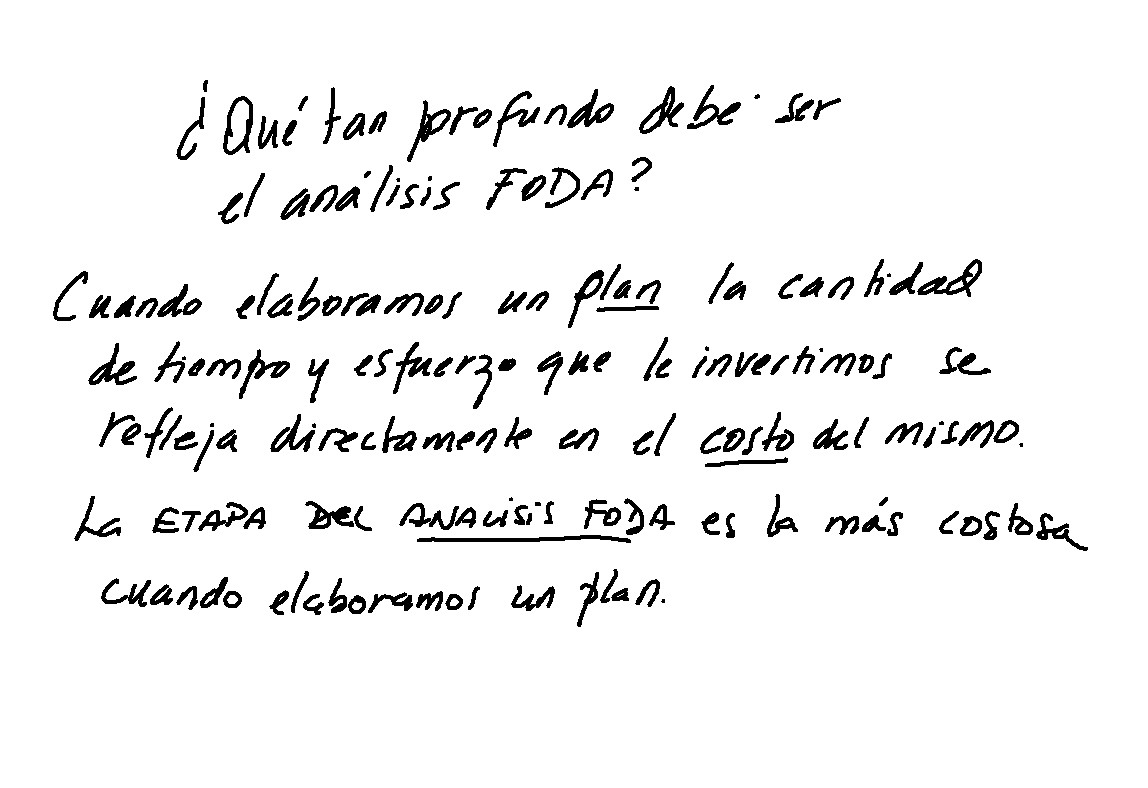 ¿Qué tan profundo debe ser
el análisis FODA?
Cuando elaboramos un plan la cantidad
de tiempo y esfuerzo que le invertimos se
refleja directamente en el costo del mismo.
La ETAPA DEL ANALISIS FODA es la más costosa
cuando elaboramos un plan.